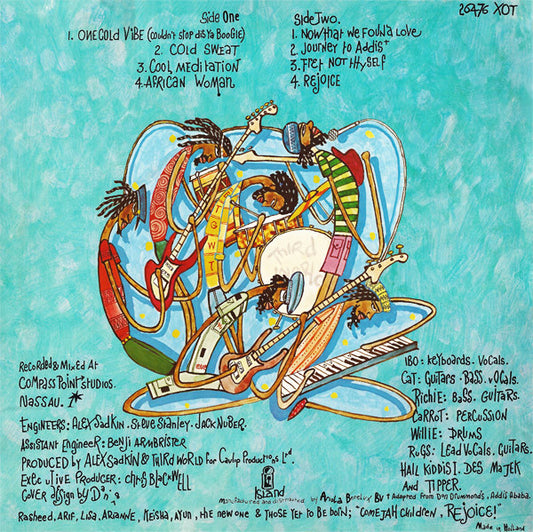 Side One
1. ONE COLD VIBE (Couldn't stop dis Ya Boogie)
2. COLD SWEAT
3. Cool Meditation
4. AFRICAN WOMAN
Side Two.
1. Now that we Found Love
2. Journey to Addis+
3. Fret Not Thyself
4. Rejoice
26476 XOT
GWT
Third World
Recorded & Mixed At
Compass Point Studios.
Nassau.
Engineers: Alex Sadkin · Steve Stanley · Jack Nuber.
Assistant Engineer: Benji Armbrister
Produced by Alex Sadkin & Third World for Cavlip Productions Ltd.
Executive Producer: Chris Blackwell
Cover design by
IBO: Keyboards. Vocals.
Cat: Guitars · Bass. Vocals.
Richie: Bass. Guitars.
Carrot: Percussion
Willie: Drums
Rugs: Lead Vocals. Guitars.
Hail Kiddis I. Des Majek
And Tipper.
Island
Manufactured and distributed by Ariola Benelux BV + Adapted from Don Drummonds, Addis Ababa.
Rasheed, Arif, Lisa, Arianne, Keisha, Ayun, the new one & those yet to be born; "Come Jah Children, REJOICE!"
Made in Holland